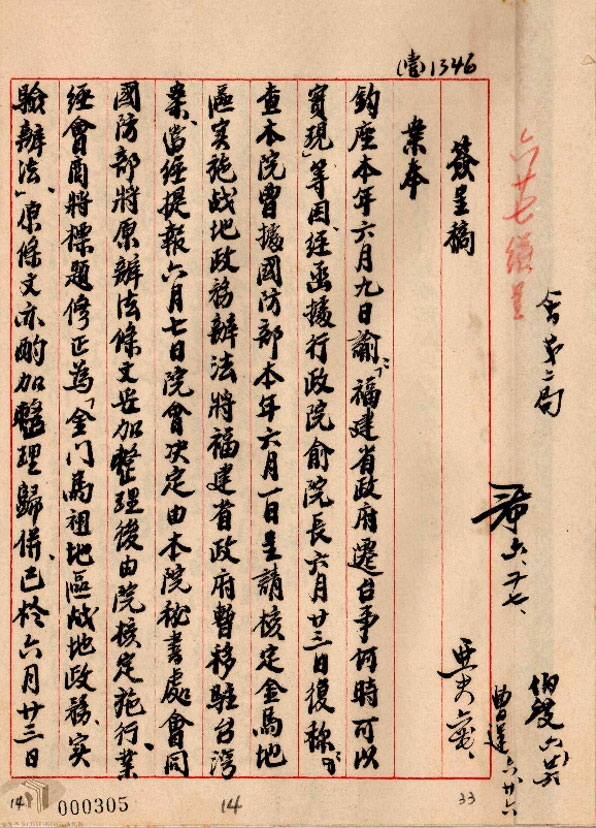 (壹)1346
六廿七繕呈
會第二局
六、廿七、
六、廿六
曹達 六廿六
簽呈稿
業奉
鈞座本年六月九日諭：「福建省政府遷台事何時可以
實現」等因、經函據行政院俞院長六月廿三日復稱：「
查本院曾據國防部本年六月一日呈請核定金馬地
區实施战地政務辦法將福建省政府暫移駐台灣
案、當經提報六月七日院會决定由本院秘書處會同
國防部將原辦法條文安加整理後由院核定施行、業
經會商將標題修正為「金门馬祖地區战地政務、实
驗辦法、」原條文亦酌加整理歸併、已於六月廿三日
14
000305
14
33